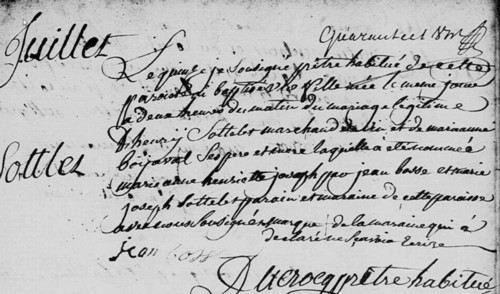 Quarante et un
Juillet
Le quinze je soussigné prêtre habitué de cette
paroisse ai baptisé la fille née le meme jour
a deux heures du matin du mariage légitime
d'henry Sottelet marchand et de marianne
Boisaval ses pere et mere laquelle a été nommée
Sottlet
marie anne henriette joseph par jean bosse et marie
joseph Sottelet parain et maraine de cette paroisse
avec nous soussignés marque de la maraine qui a
declaré ne scavoir Ecrire
jean bosse
Ducrocq prêtre habitué